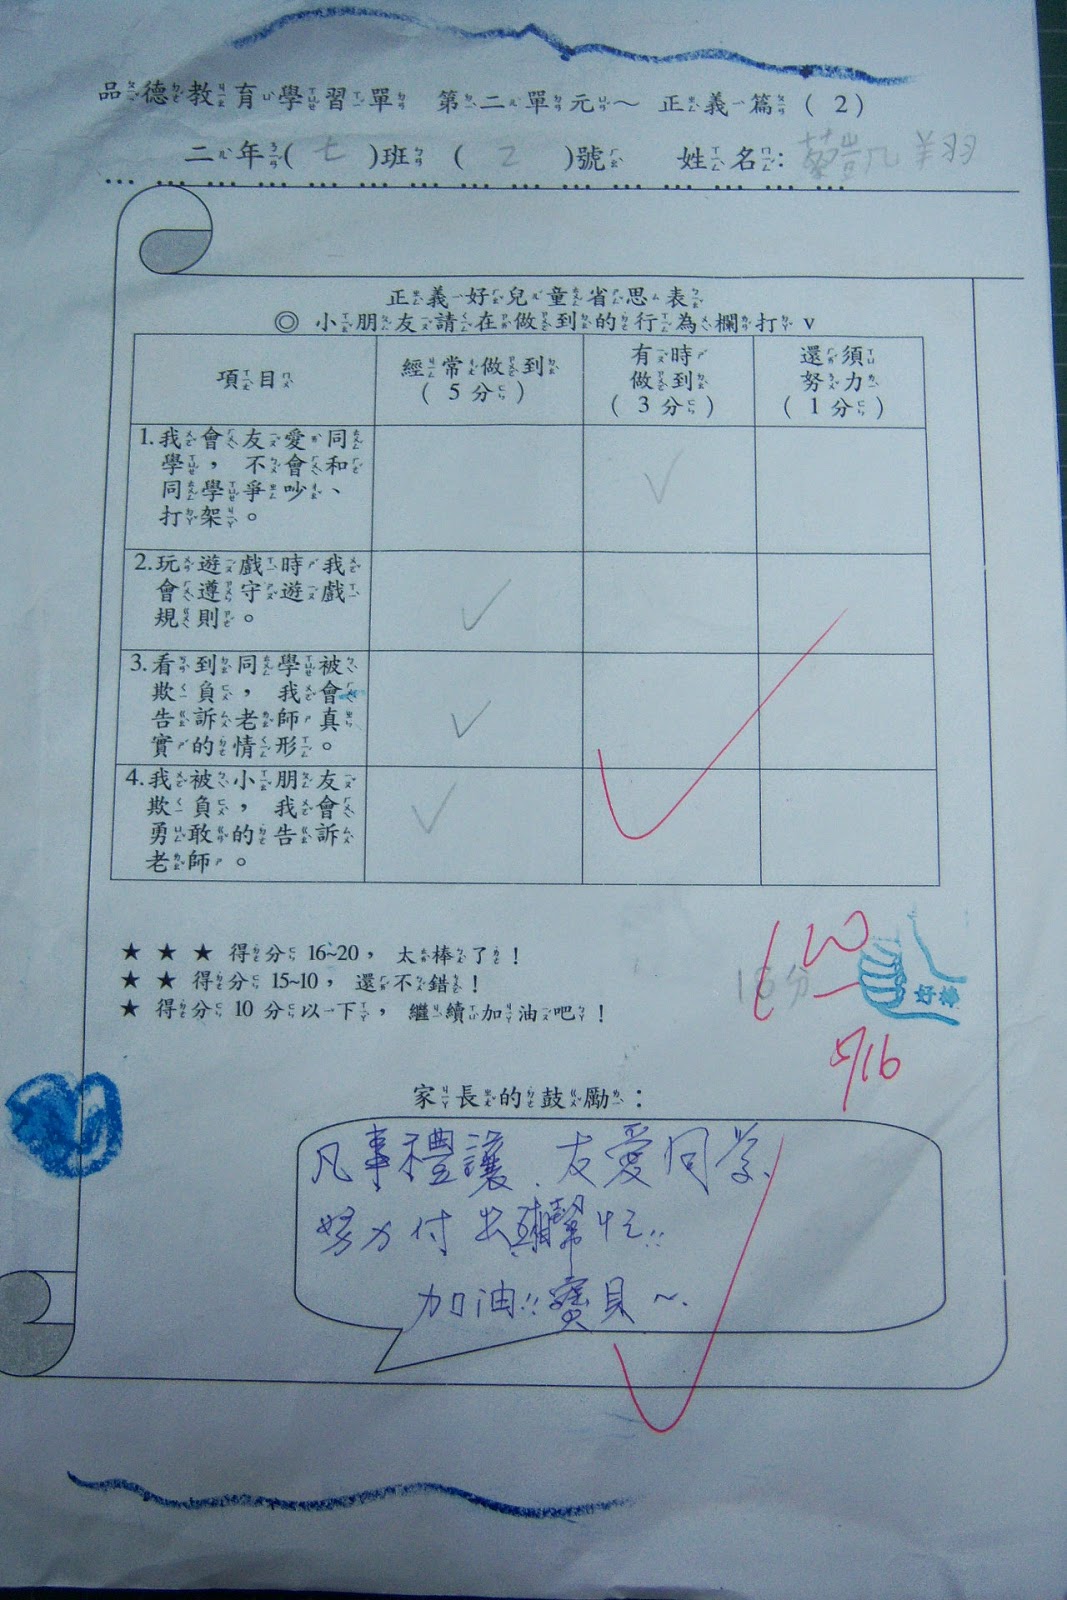 品德教育學習單 第二單元～ 正義篇(2)
二年(七)班 (2)號 姓名:蔡凱翔
正義好兒童省思表
◎ 小朋友請在做到的行為欄打 v
項目
經常做到
(5分)
有時
做到
(3分)
還須
努力
(1分)
1.我會友愛同
學，不會和
同學爭吵、
打架。
2.玩遊戲時我
會遵守遊戲
規則。
3.看到同學被
欺負，我會
告訴老師真
實的情形。
4.我被小朋友
欺負，我會
勇敢的告訴
老師。
★ ★ ★ 得分 16~20，太棒了！
★ ★ 得分 15~10，還不錯！
★ 得分 10 分以下，繼續加油吧！
好棒
5/16
家長的鼓勵：
凡事禮讓、友愛同學、
努力付出互相幫忙!!
加油!!寶貝～.